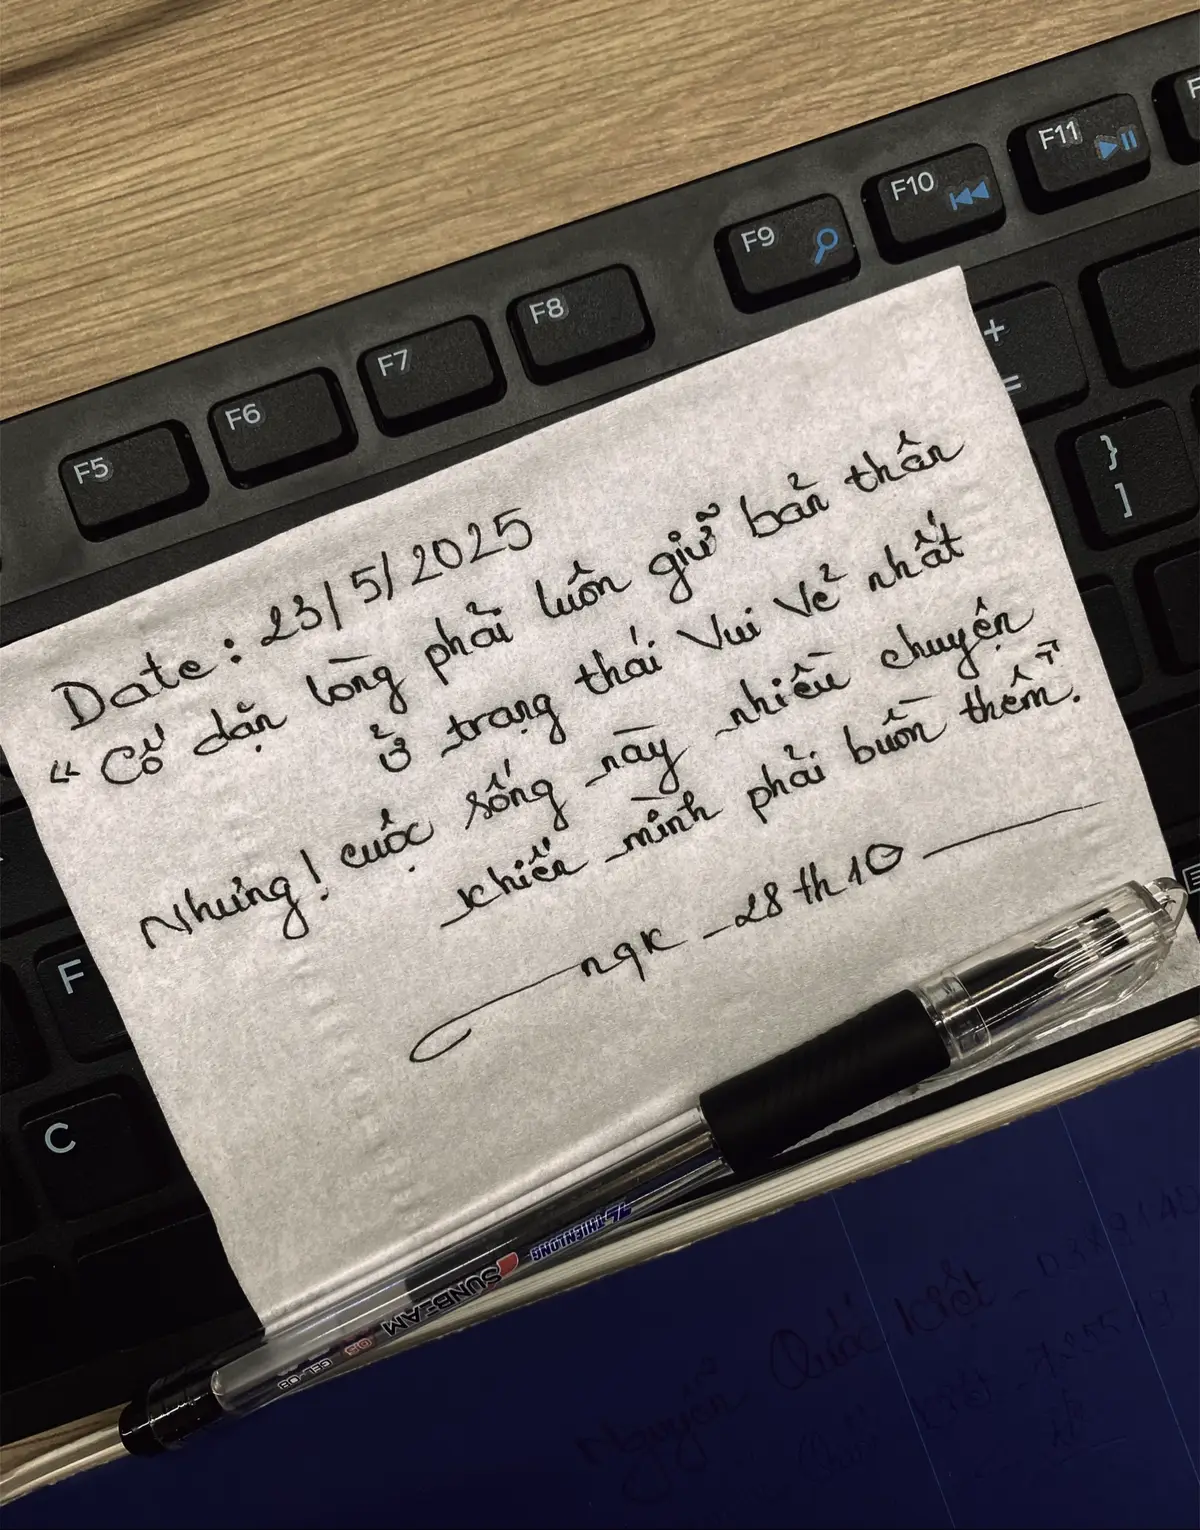 F5
F6
F7
F8
F9
F10
F11
+
=
}
]
F
C
Date: 23/5/2025
"Cố dặn lòng phải luôn giữ bản thân
ở trạng thái vui vẻ nhất
Nhưng! cuộc sống này nhiều chuyện
khiến mình phải buồn thêm".
nqk - 28 th 10
THIENLONG
SUNBEAM
05
GEL-08
Nguyễn Quốc Kiệt